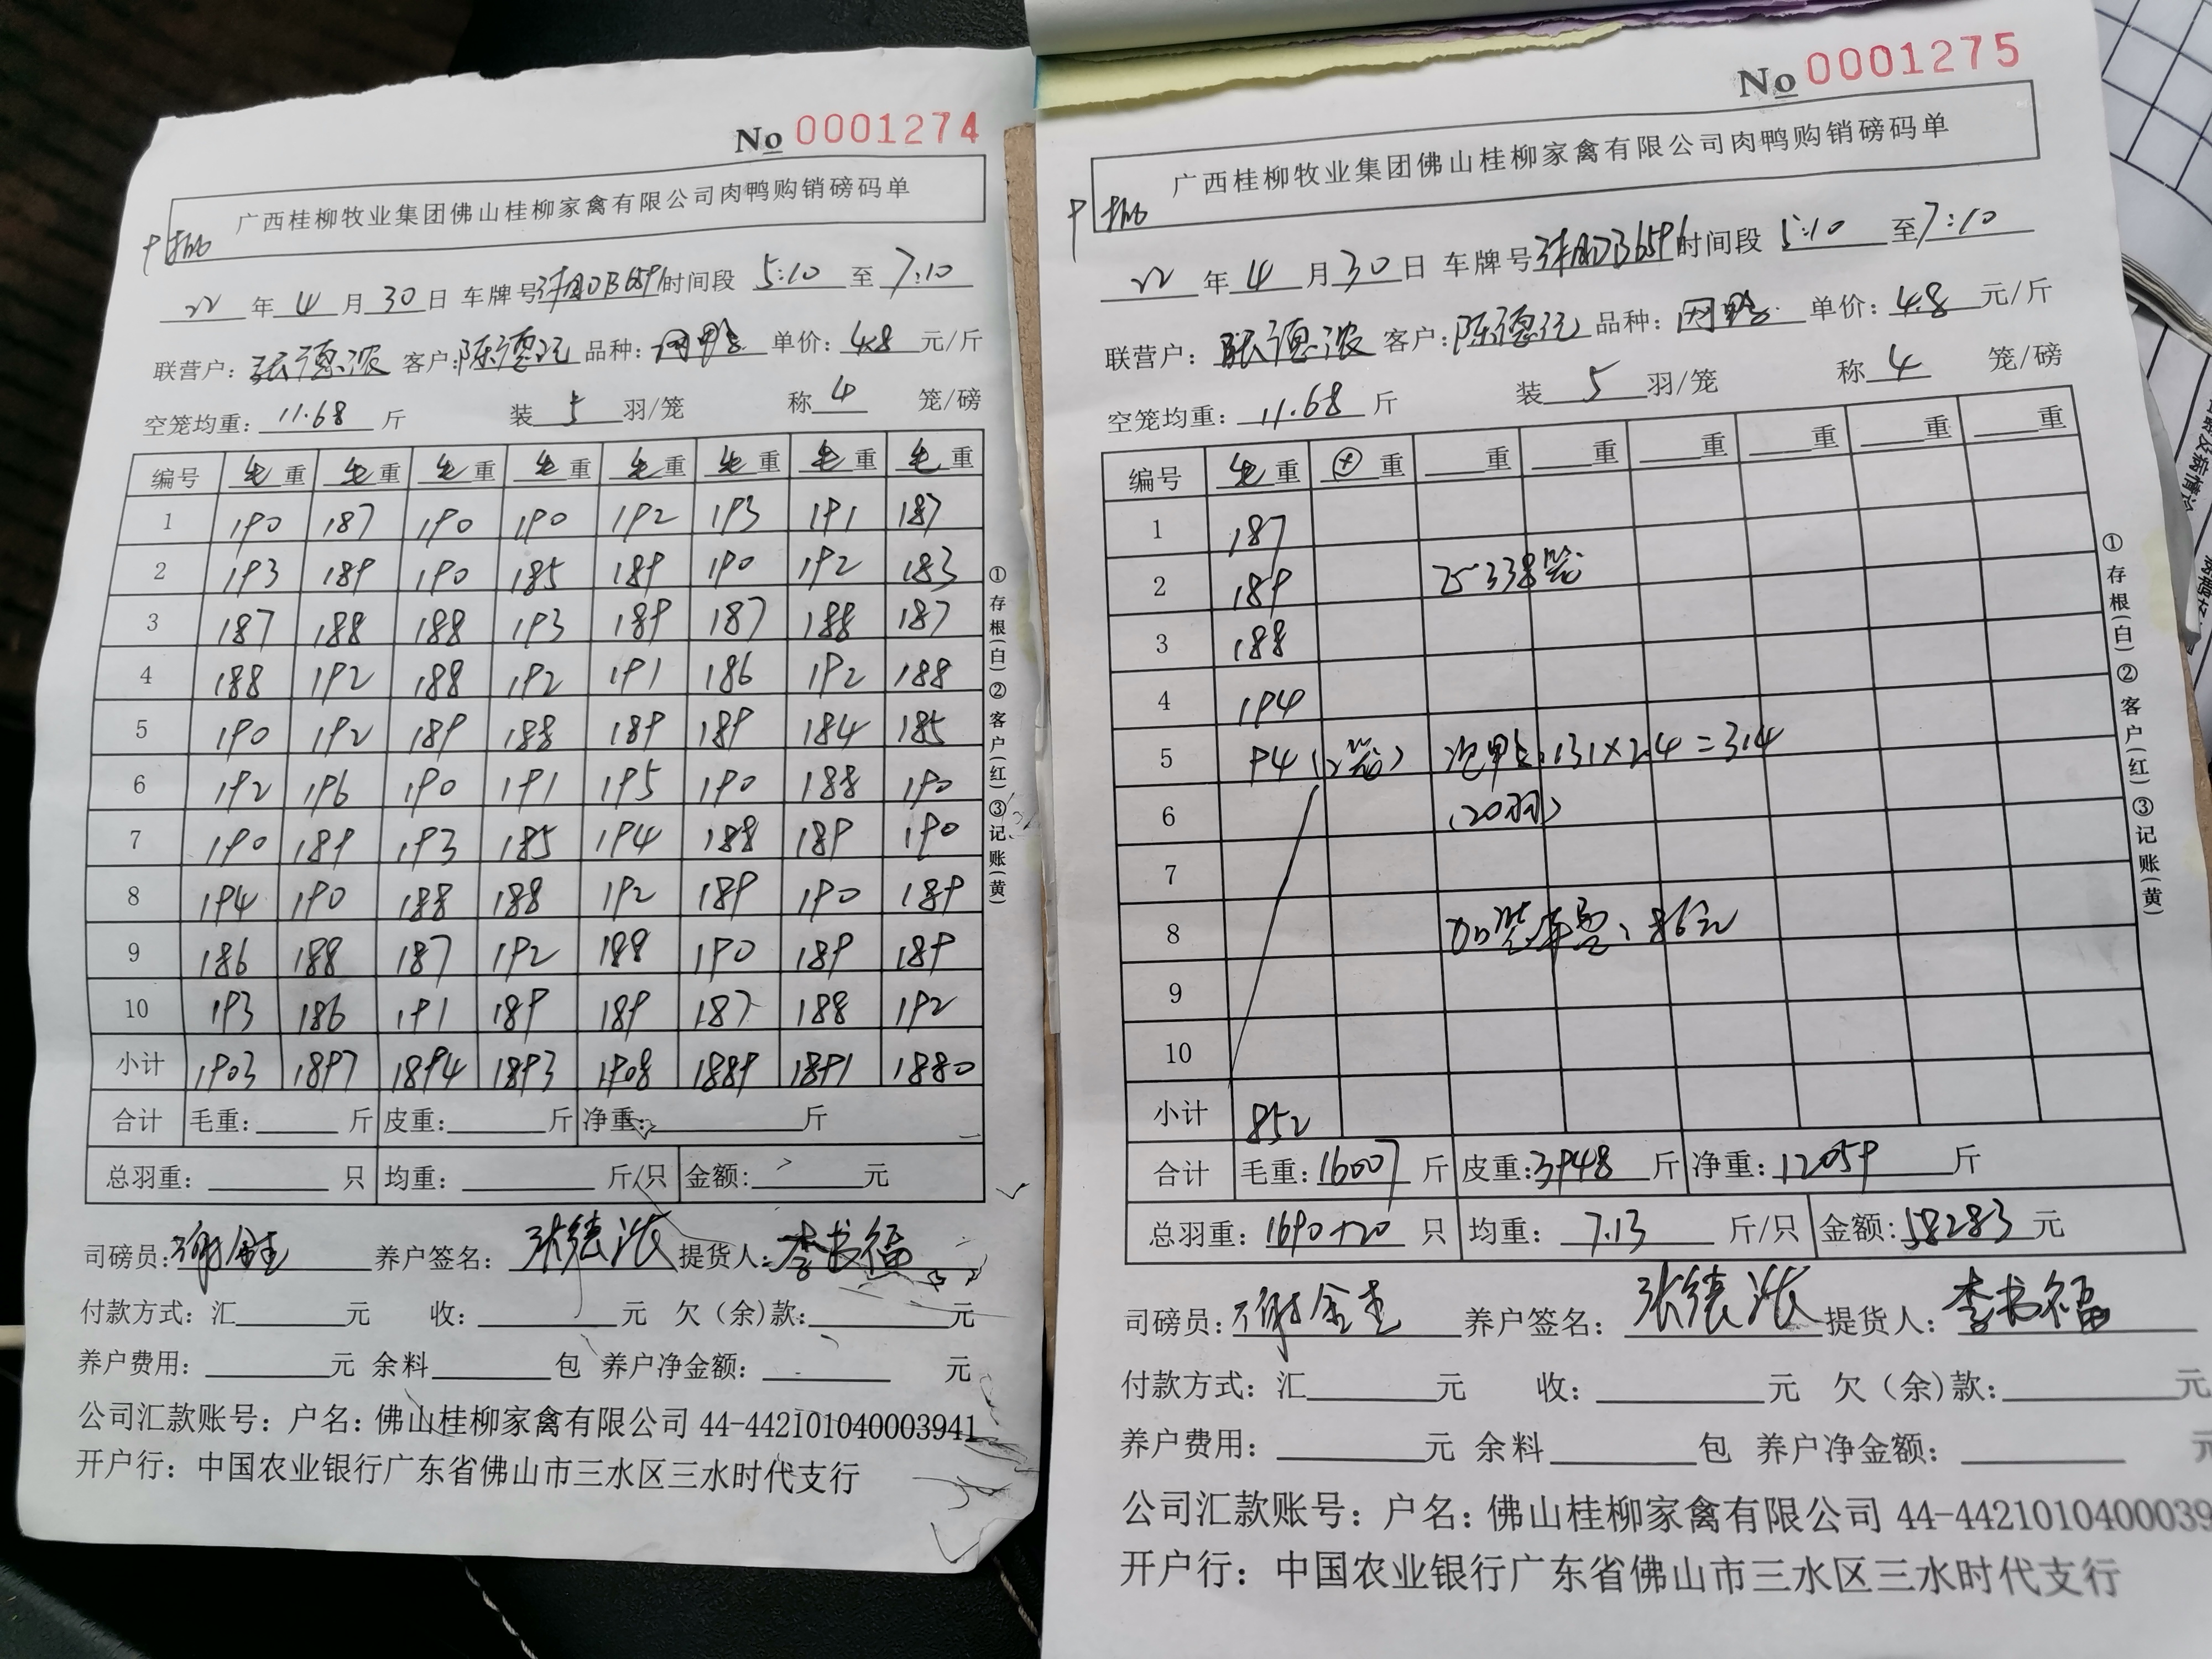 No 0001274
广西桂柳牧业集团佛山桂柳家禽有限公司肉鸭购销磅码单
22 年 4 月 30 日 车牌号 时间段 5:10 至 7:10
联营户: 张德浓 客户: 陈德记 品种: 肉鸭 单价: 4.8 元/斤
空笼均重: 11.68 斤 装 5 羽/笼 称 4 笼/磅
编号 毛重 毛重 毛重 毛重 毛重 毛重 毛重 毛重
1 190 187 190 190 192 193 191 187
2 193 189 190 185 189 190 192 183
3 187 188 188 193 189 187 188 187
4 188 192 188 192 191 186 192 188
5 190 192 189 188 189 189 184 185
6 192 196 190 191 195 190 188 190
7 190 189 193 185 194 188 189 190
8 194 190 188 188 192 189 190 189
9 186 188 187 192 188 190 189 189
10 193 186 191 189 189 187 188 192
小计 1903 1897 1894 1893 1908 1889 1891 1880
合计 毛重: 斤 皮重: 斤 净重: 斤
总羽重: 只 均重: 斤/只 金额: 元
司磅员: 谢金圭 养户签名: 张德浓 提货人: 李书福
付款方式: 汇 元 收: 元 欠(余)款: 元
养户费用: 元 余料 包 养户净金额: 元
公司汇款账号: 户名: 佛山桂柳家禽有限公司 44-442101040003941
开户行: 中国农业银行广东省佛山市三水区三水时代支行
①存根(白)②客户(红)③记账(黄)
No 0001275
广西桂柳牧业集团佛山桂柳家禽有限公司肉鸭购销磅码单
22 年 4 月 30 日 车牌号 时间段 5:10 至 7:10
联营户: 张德浓 客户: 陈德记 品种: 肉鸭 单价: 4.8 元/斤
空笼均重: 11.68 斤 装 5 羽/笼 称 4 笼/磅
编号 毛重 重 重 重 重 重 重 重
1 187
2 189 338笼
3 188
4 194
5 94(2笼) 131×2.4=314
6 (20羽)
7
8 加装车费: 86元
9
10
小计 852
合计 毛重: 16007 斤 皮重: 3948 斤 净重: 12059 斤
总羽重: 1690+20 只 均重: 7.13 斤/只 金额: 58283 元
司磅员: 谢金圭 养户签名: 张德浓 提货人: 李书福
付款方式: 汇 元 收: 元 欠(余)款: 元
养户费用: 元 余料 包 养户净金额: 元
公司汇款账号: 户名: 佛山桂柳家禽有限公司 44-4421010400039
开户行: 中国农业银行广东省佛山市三水区三水时代支行
①存根(白)②客户(红)③记账(黄)